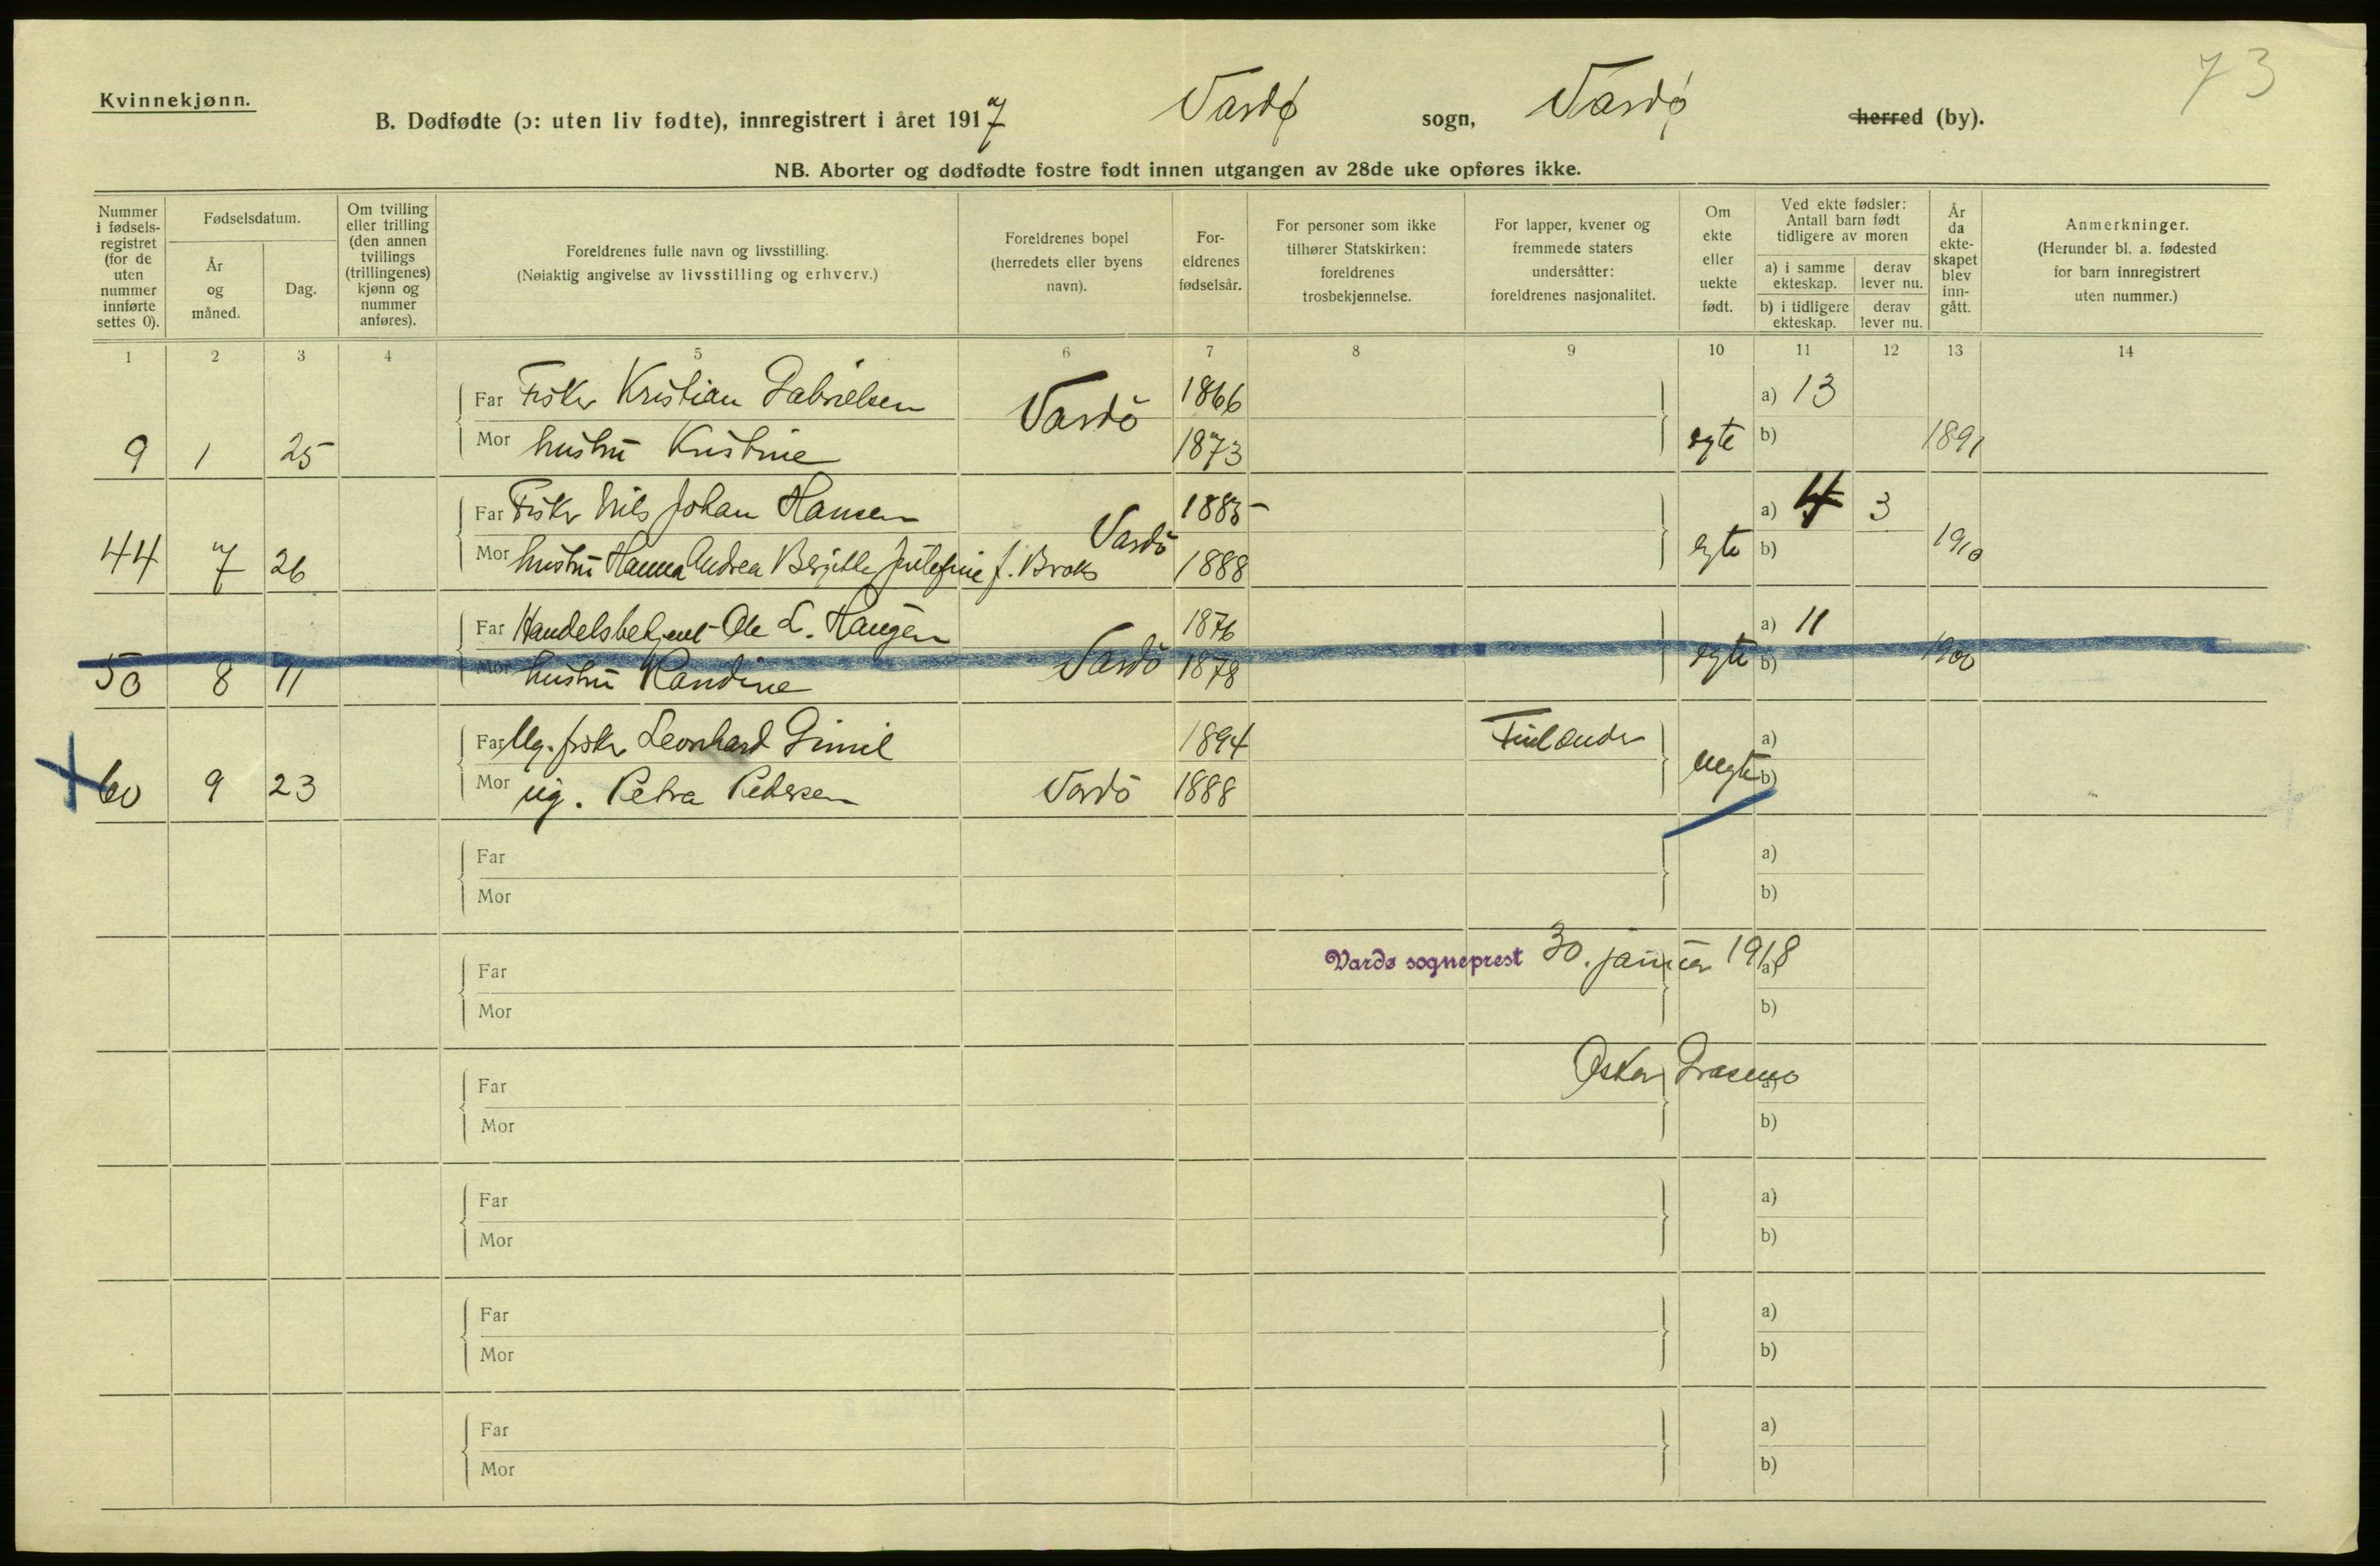 73
Kvinnekjønn.
B. Dødfødte (ɔ: uten liv fødte), innregistrert i året 1917 Vardø sogn, Vardø herred (by).
NB. Aborter og dødfødte fostre født innen utgangen av 28de uke opføres ikke.
Nummer i fødsels-registret (for de uten nummer innførte settes 0).
Fødselsdatum.
År og måned.
Dag.
Om tvilling eller trilling (den annen tvillings (trillingenes) kjønn og nummer anføres).
Foreldrenes fulle navn og livsstilling.
(Nøiaktig angivelse av livsstilling og erhverv.)
Foreldrenes bopel (herredets eller byens navn).
For-eldrenes fødselsår.
For personer som ikke tilhører Statskirken: foreldrenes trosbekjennelse.
For lapper, kvener og fremmede staters undersåtter: foreldrenes nasjonalitet.
Om ekte eller uekte født.
Ved ekte fødsler: Antall barn født tidligere av moren
a) i samme ekteskap.
derav lever nu.
b) i tidligere ekteskap.
derav lever nu.
År da ekte-skapet blev inn-gått.
Anmerkninger.
(Herunder bl. a. fødested for barn innregistrert uten nummer.)
1 2 3 4 5 6 7 8 9 10 11 12 13 14
Far Fisker Kristian Gabrielsen Vardö 1866 a) 13
9 1 25 Mor hustru Kristine 1873 egte b) 1891
Far Fisker Nils Johan Hansen Vardö 1885 a) 4 3
44 7 26 Mor hustru Hanna Andrea Berjitte Julefine f. Broks 1888 egte b) 1910
Far Handelsbetjent Ole L. Haugen 1876 a) 11
50 8 11 Mor hustru Randine Vardö 1878 egte b) 1900
Far Ug. fisker Leonhard Gimil 1894 Finlænder a)
60 9 23 Mor ug. Petra Pedersen Vardö 1888 uegte b)
Far a)
Mor b)
Vardø sogneprest 30. januar 1918
Far a)
Mor b)
Oskar
Far a)
Mor b)
Far a)
Mor b)
Far a)
Mor b)
Far a)
Mor b)